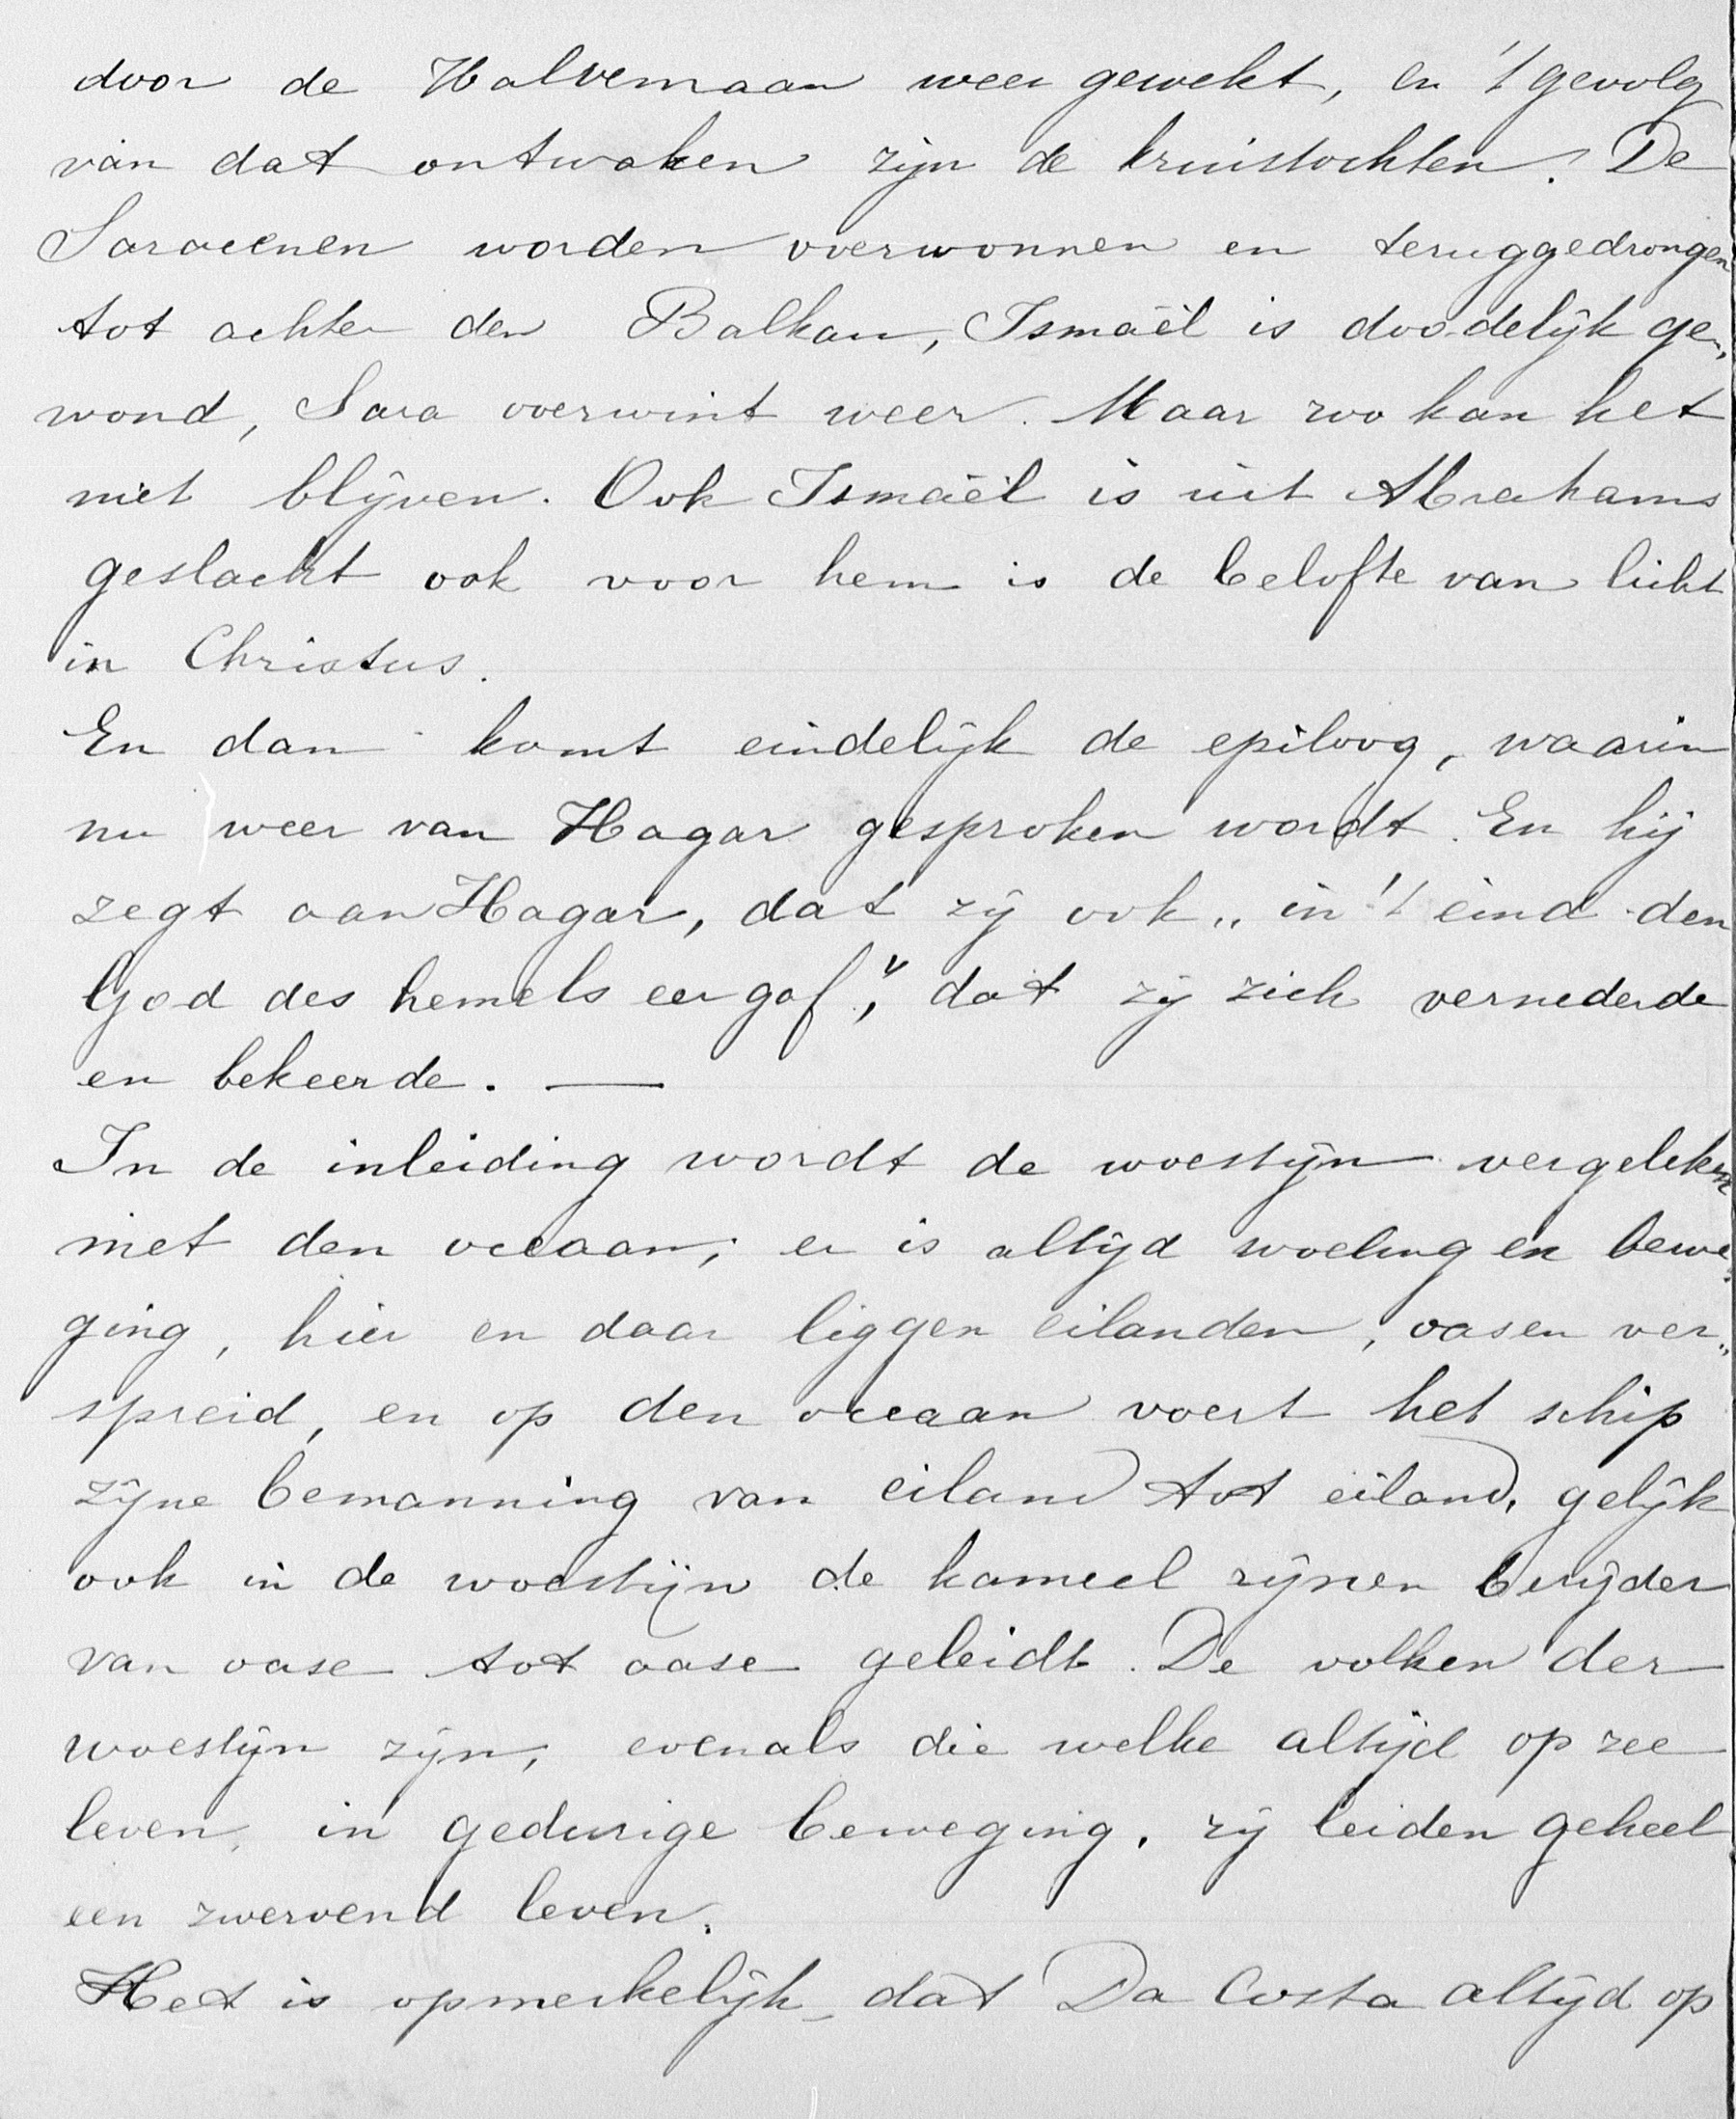 door de Halvemaan weer gewekt, en 't gevolg
van dat ontwaken zijn de kruistochten. De
Saracenen worden overwonnen en teruggedrongen
tot achter den Balkan, Ismaël is doodelijk ge„
wond, Sara overwint weer. Maar zoo kan het
niet blijven. Ook Ismaël is uit Abrahams
geslacht ook voor hem is de belofte van licht
in Christus.
En dan komt eindelijk de epiloog, waarin
nu weer van Hagar gesproken wordt. En hij
zegt aan Hagar, dat zij ook „in 't eind den
God des hemels eer gaf", dat zij zich vernederde
en bekeerde. —
In de inleiding wordt de woestijn vergeleken
met den oceaan; er is altijd woeling en bewe„
ging, hier en daar liggen eilanden, oasen ver„
spreid, en op den oceaan voert het schip
zijne bemanning van eiland tot eiland, gelijk
ook in de woestijn de kameel zijnen berijder
van oase tot oase geleidt. De volken der
woestijn zijn, evenals die welke altijd op zee
leven, in gedurige beweging, zij leiden geheel
een zwervend leven.
Het is opmerkelijk dat Da Costa altijd op